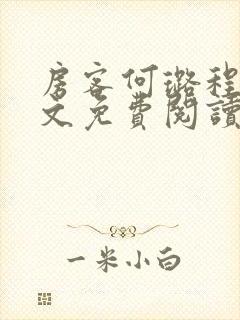 房客何璐程
文免費閱讀
一米小白